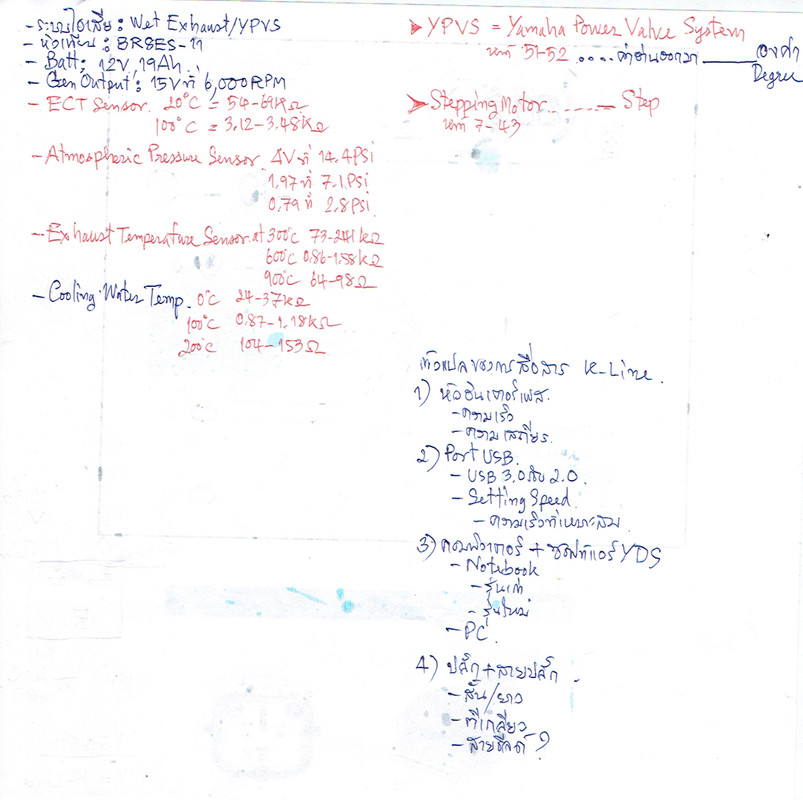 - ระบบไอเสีย : Wet Exhaust/YPVS
- หัวเทียน : BR8ES-11
- Batt : 12V, 19Ah.
- Gen Output : 15V ที่ 6,000RPM
- ECT Sensor. 20°C = 54-69KΩ
100°C = 3.12-3.48KΩ
- Atmospheric Pressure Sensor. 4V ที่ 14.4PSi
1.97 ที่ 7.1PSi
0.79 ที่ 2.8PSi.
- Exhaust Temperature Sensor. at 300°C 73-241KΩ
600°C 0.86-1.58KΩ
900°C 64-98Ω
- Cooling Water Temp. 0°C 24-37KΩ
100°C 0.87-1.18KΩ
200°C 104-153Ω
➤ YPVS = Yamaha Power Valve System
หน้า 51-52 .... ค่าอ่านออกมา ______ องศา
Degree
➤ Stepping Motor........ — Step
หน้า 7-43
ตัวแปลของการสื่อสาร K-Line.
1) หัวอินเตอร์เฟส.
- ความเร็ว
- ความเสถียร.
2) Port USB.
- USB 3.0 กับ 2.0.
- Setting Speed.
- ความเร็วที่เหมาะสม.
3) คอมพิวเตอร์ + ซอฟท์แวร์ YDS
- Notebook
- รุ่นเก่า
- รุ่นใหม่
- PC.
4) ปลั๊ก + สายปลั๊ก -
- สั้น/ยาว
- ตีเกลียว
- สายชีลด์ ?